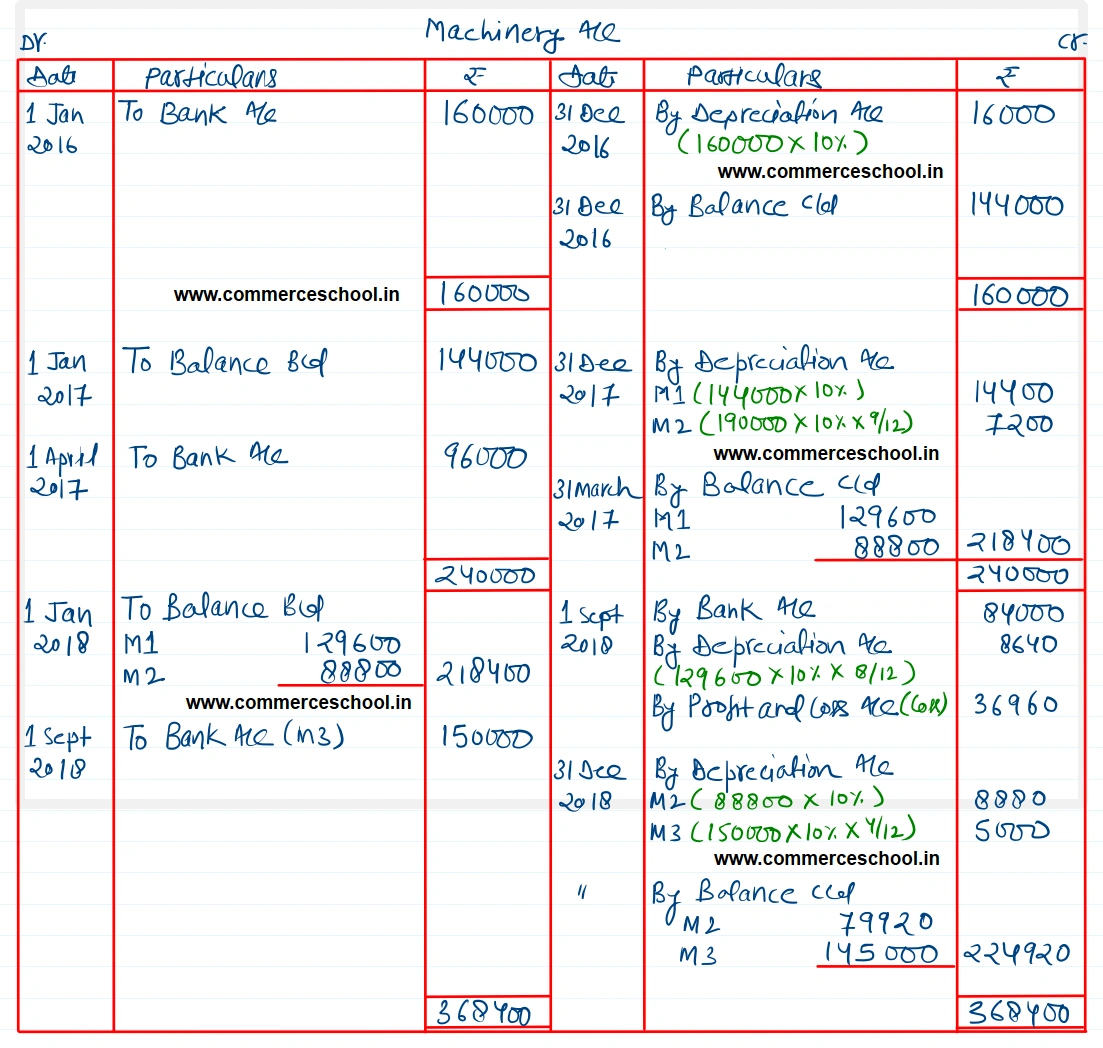 Machinery A/c
Dr. Cr.
Date Particulars ₹ Date Particulars ₹
1 Jan To Bank A/c 160000 31 Dec By Depreciation A/c 16000
2016 2016 (160000 X 10%)
www.commerceschool.in
31 Dec By Balance c/d 144000
2016
www.commerceschool.in 160000 160000
1 Jan To Balance B/d 144000 31 Dec By Depreciation A/c
2017 2017 M1 (144000 X 10%) 14400
M2 (190000 X 10% X 9/12) 7200
1 April To Bank A/c 96000 www.commerceschool.in
2017 31 March By Balance c/d
2017 M1 129600
M2 88800 218400
240000 240000
1 Jan To Balance B/d 1 Sept By Bank A/c 84000
2018 M1 129600 2018 By Depreciation A/c 8640
M2 88800 218400 (129600 X 10% X 8/12)
www.commerceschool.in By Profit and Loss A/c (Loss) 36960
1 Sept To Bank A/c (M3) 150000
2018 31 Dec By Depreciation A/c
2018 M2 (88800 X 10%) 8880
M3 (150000 X 10% X 4/12) 5000
www.commerceschool.in
" By Balance c/d
M2 79920
M3 145000 224920
368400 368400